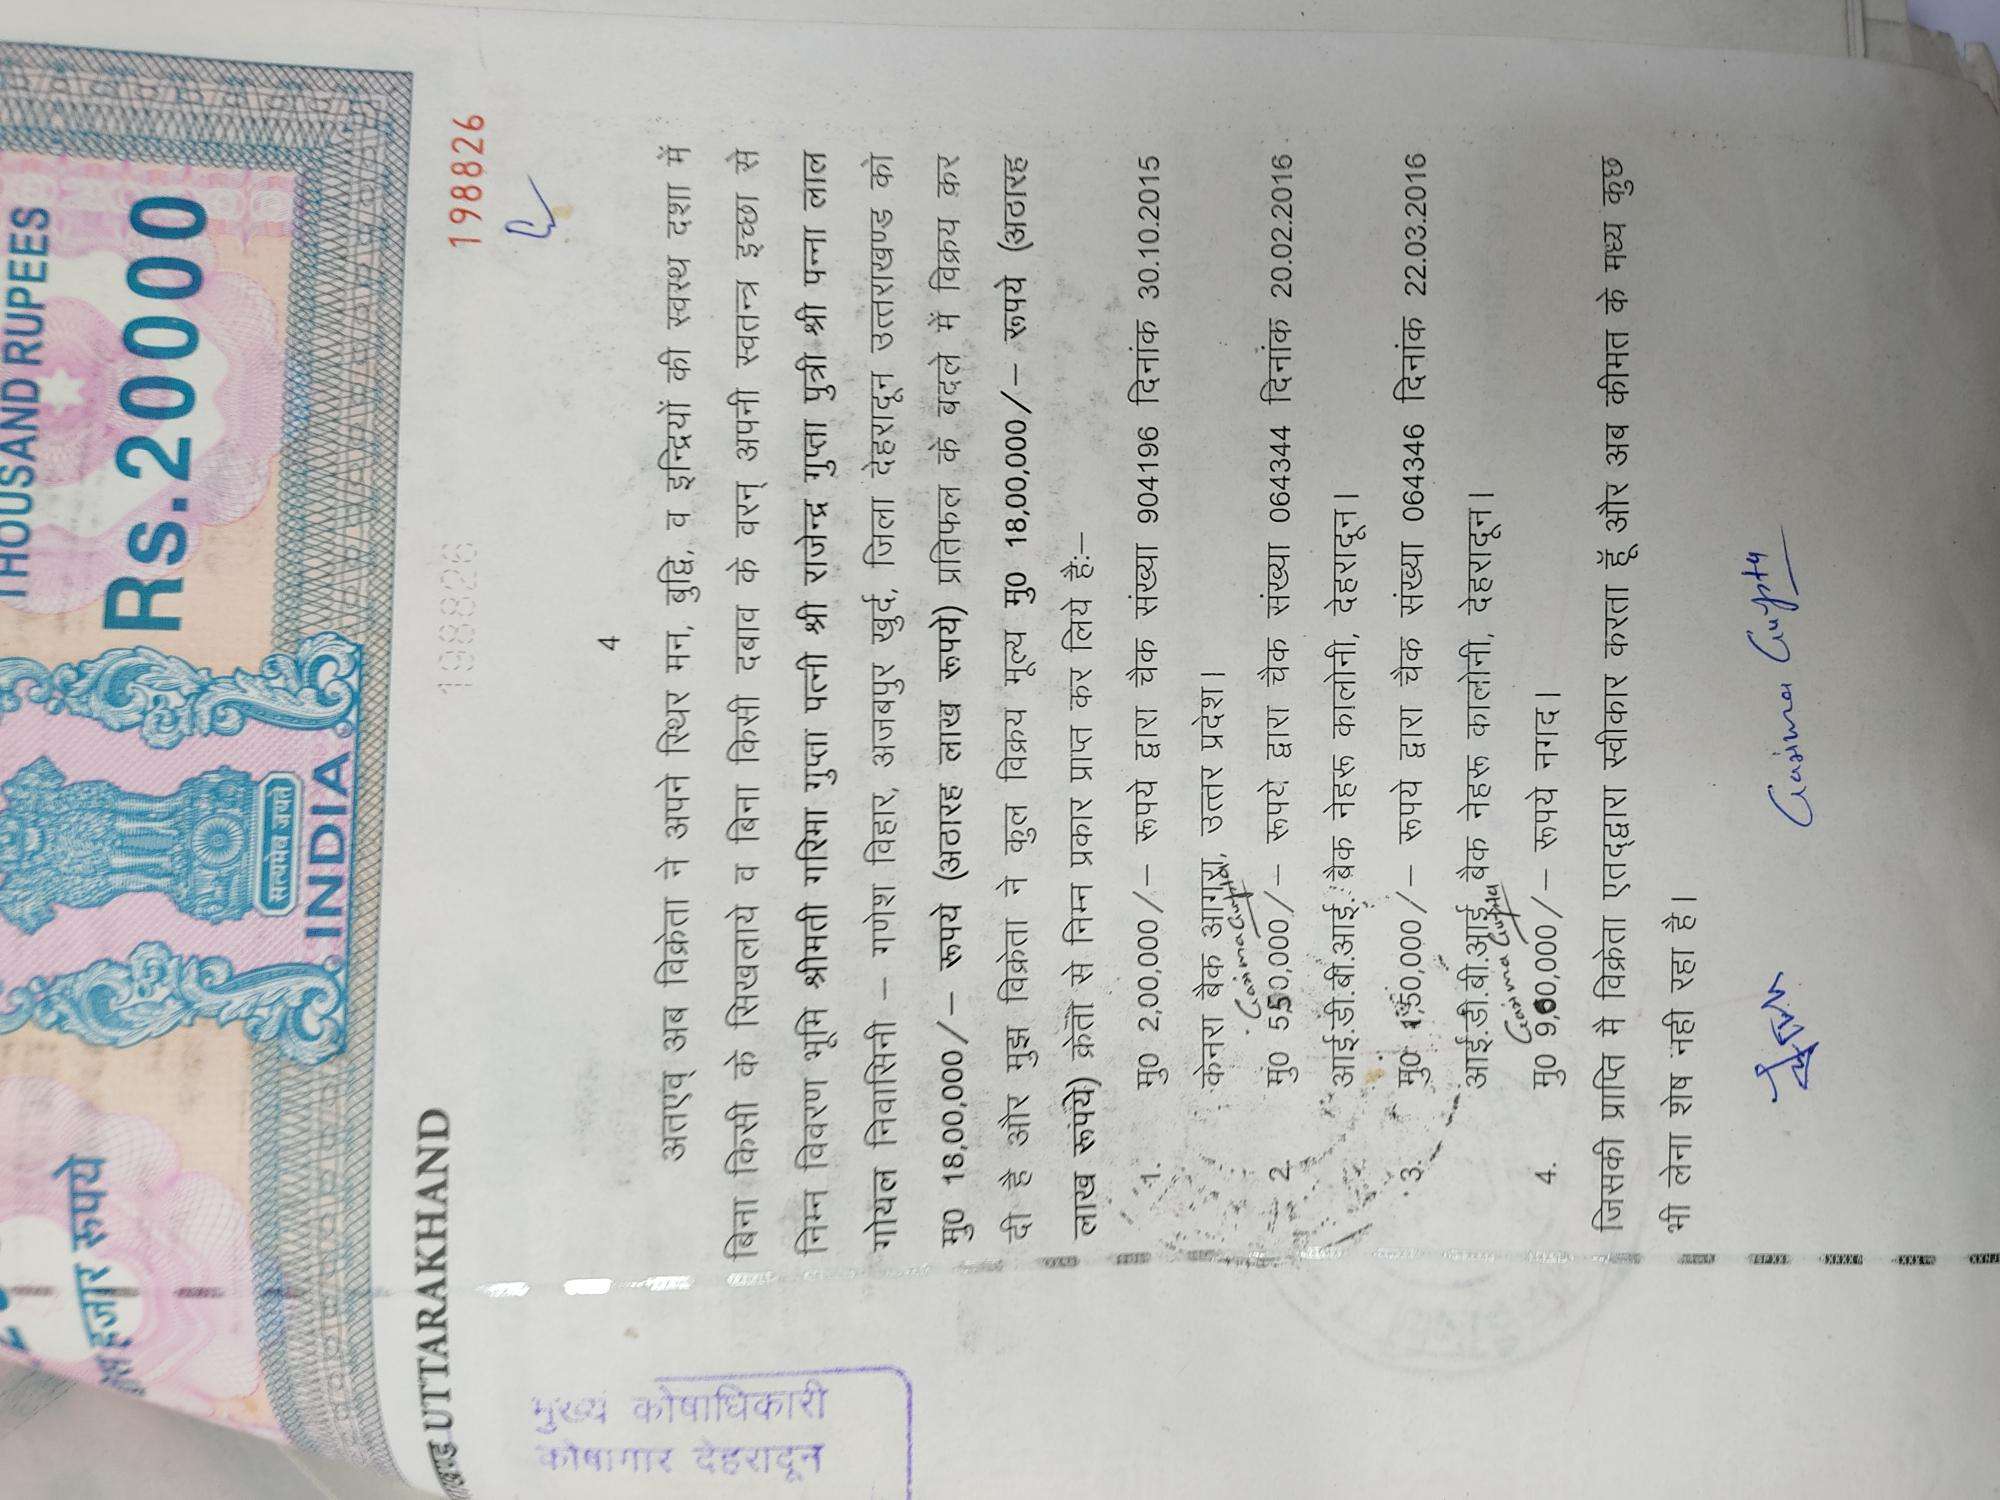 THOUSAND RUPEES
Rs.20000
हजार रुपये
सत्यमेव जयते
INDIA
UTTARAKHAND
198826
198826
मुख्य कोषाधिकारी
कोषागार देहरादून
4
अतएव् अब विक्रेता ने अपने स्थिर मन, बुद्धि, व इन्द्रियों की स्वस्थ दशा में
बिना किसी के सिखलाये व बिना किसी दबाव के वरन् अपनी स्वतन्त्र इच्छा से
निम्न विवरण भूमि श्रीमती गरिमा गुप्ता पत्नी श्री राजेन्द्र गुप्ता पुत्री श्री पन्ना लाल
गोयल निवासिनी – गणेश विहार, अजबपुर खुर्द, जिला देहरादून उत्तराखण्ड को
मु0 18,00,000/– रूपये (अठारह लाख रूपये) प्रतिफल के बदले में विक्रय कर
दी है और मुझ विक्रेता ने कुल विक्रय मूल्य मु0 18,00,000/– रूपये (अठारह
लाख रूपये) क्रेता से निम्न प्रकार प्राप्त कर लिये हैः–
1. मु0 2,00,000/– रूपये द्वारा चैक संख्या 904196 दिनांक 30.10.2015
केनरा बैंक आगरा, उत्तर प्रदेश।
Garima Gupta
2. मु0 5,50,000/– रूपये द्वारा चैक संख्या 064344 दिनांक 20.02.2016
आई.डी.बी.आई. बैंक नेहरू कालोनी, देहरादून।
3. मु0 1,50,000/– रूपये द्वारा चैक संख्या 064346 दिनांक 22.03.2016
आई.डी.बी.आई बैंक नेहरू कालोनी, देहरादून।
Garima Gupta
4. मु0 9,00,000/– रूपये नगद।
जिसकी प्राप्ति मै विक्रेता एतद्द्वारा स्वीकार करता हूँ और अब कीमत के मध्य कुछ
भी लेना शेष नही रहा है।
Garima Gupta